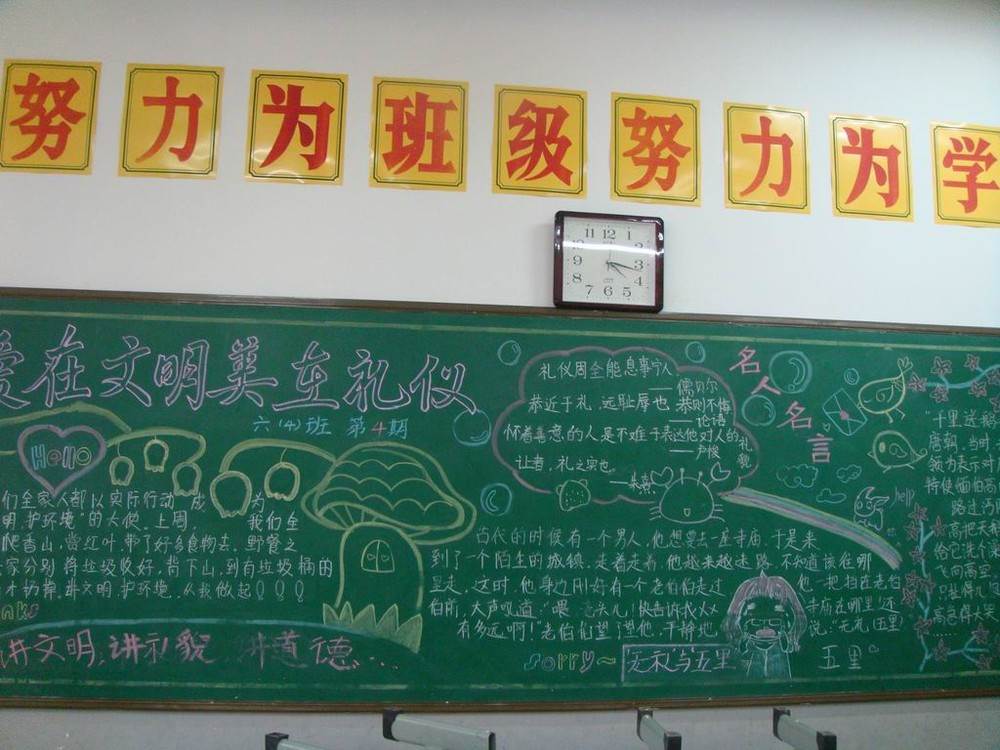 努力为班级努力为学
11 12 1
9 3
8 4
7 6 5
爱在文明美在礼仪
六(4)班 第4期
Hello
们全家人都以实际行动 成 为
明 护环境"的大使.上周. 我们全
爬香山,赏红叶.带了好多食物去.野餐之
家分别将垃圾收好,背下山,到有垃圾桶的
讲文明,护环境.从我做起!!!
讲文明,讲礼貌 讲道德...
礼仪周全能息事宁人
——儒贝尔
恭近于礼,远耻辱也 恭则不侮
——论语
怀着善意的人是不难于表达他对人的礼貌
——卢梭
让者,礼之实也
——朱熹
名人名言
help!
古代的时候有一个男人,他想要去一座寺庙.于是来
到了一个陌生的城镇.走着走着.他越来越走路.不知道该往哪
里走,这时,他身边刚好有一个老伯伯走过 他一把拍在老伯
伯所,大声吼道:"喂 老头儿!快告诉我 寺庙在哪里?还
有多远啊!"老伯伯望望他,干静地 说:"无礼(五里)
sorry~
无礼与五里
五里
"千里送鹅
唐朝,当时
领为表示对
特使缅伯高
路过沔
高把天
给它洗个澡
飞向高空